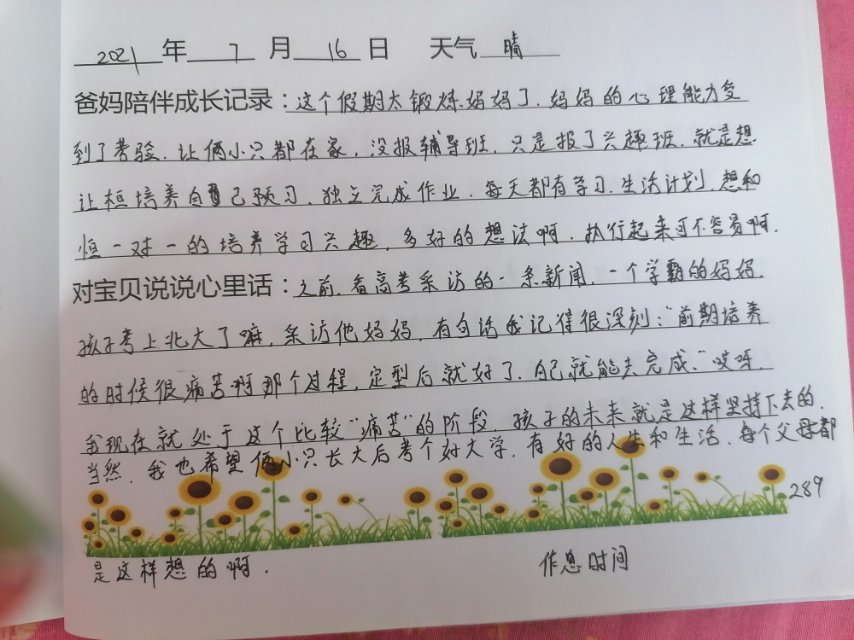 2021 年 7 月 16 日 天气 晴
爸妈陪伴成长记录:这个假期太锻炼妈妈了.妈妈的心理能力受
到了考验.让俩小只都在家,没报辅导班.只是报了兴趣班.就是想
让桓培养自己预习、独立完成作业.每天都有学习.生活计划.想和
恒一对一的培养学习兴趣,多好的想法啊.执行起来可不容易啊.
对宝贝说说心里话:之前.看高考采访的一条新闻.一个学霸的妈妈.
孩子考上北大了嘛,采访他妈妈,有句话我记得很深刻:"前期培养
的时候很痛苦啊那个过程,定型后就好了.自己就能去完成."哎呀.
我现在就处于这个比较"痛苦"的阶段.孩子的未来就是这样坚持下去的.
当然.我也希望俩小只长大后考个好大学.有好的人生和生活.每个父母都
289
是这样想的啊. 作息时间